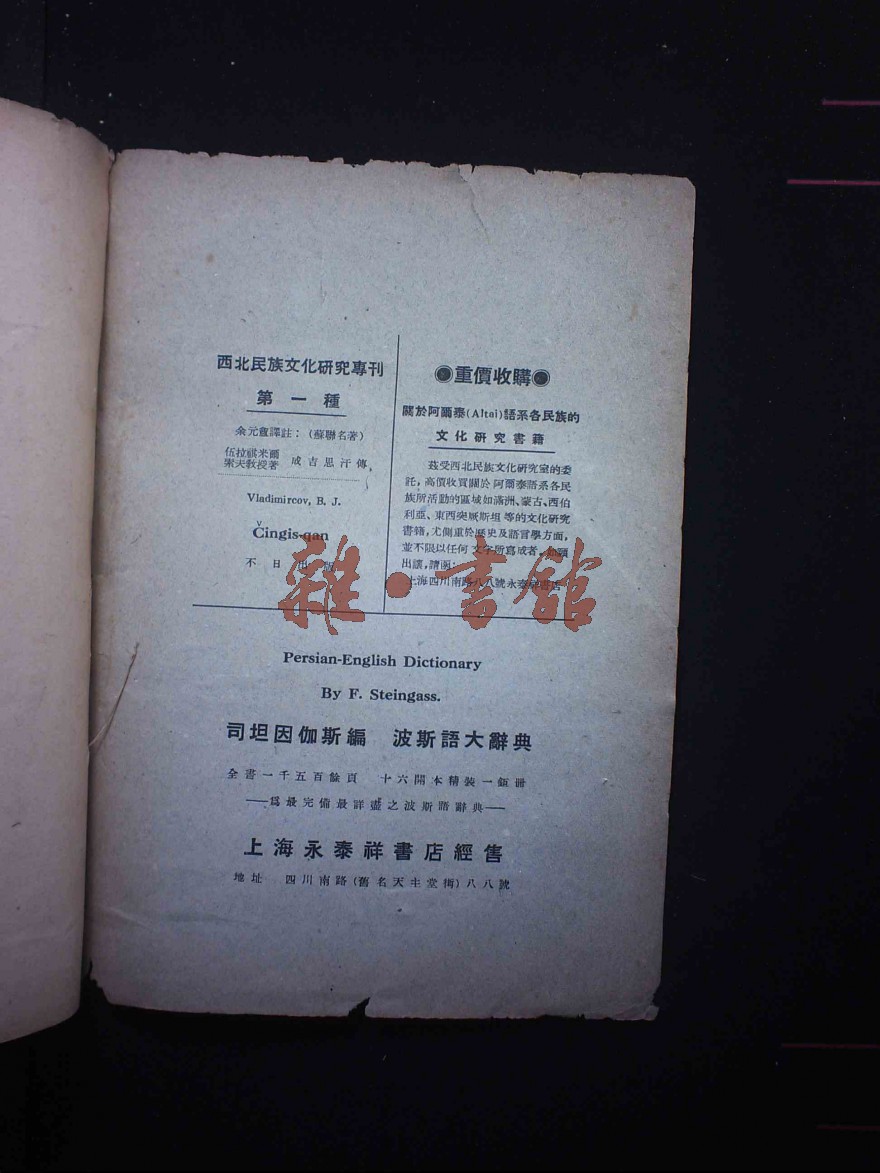 西北民族文化研究專刊
第一種
余元盦譯註：（蘇聯名著）
伍拉祺米爾
索夫教授著 成吉思汗傳
Vladimircov, B. J.
Čingis-qan
不日出版
●重價收購●
關於阿爾泰(Altai)語系各民族的
文化研究書籍
茲受西北民族文化研究室的委
託，高價收買關於阿爾泰語系各民
族所活動的區域如滿洲、蒙古、西伯
利亞、東西突厥斯坦等的文化研究
書籍，尤側重於歷史及語言學方面，
並不限以任何文字所寫成者，如願
出讓，請函：
上海四川南路八八號永泰祥書店
Persian-English Dictionary
By F. Steingass.
司坦因伽斯編 波斯語大辭典
全書一千五百餘頁 十六開本精裝一鉅冊
——爲最完備最詳盡之波斯語辭典——
上海永泰祥書店經售
地址 四川南路(舊名天主堂街)八八號
雜·書館